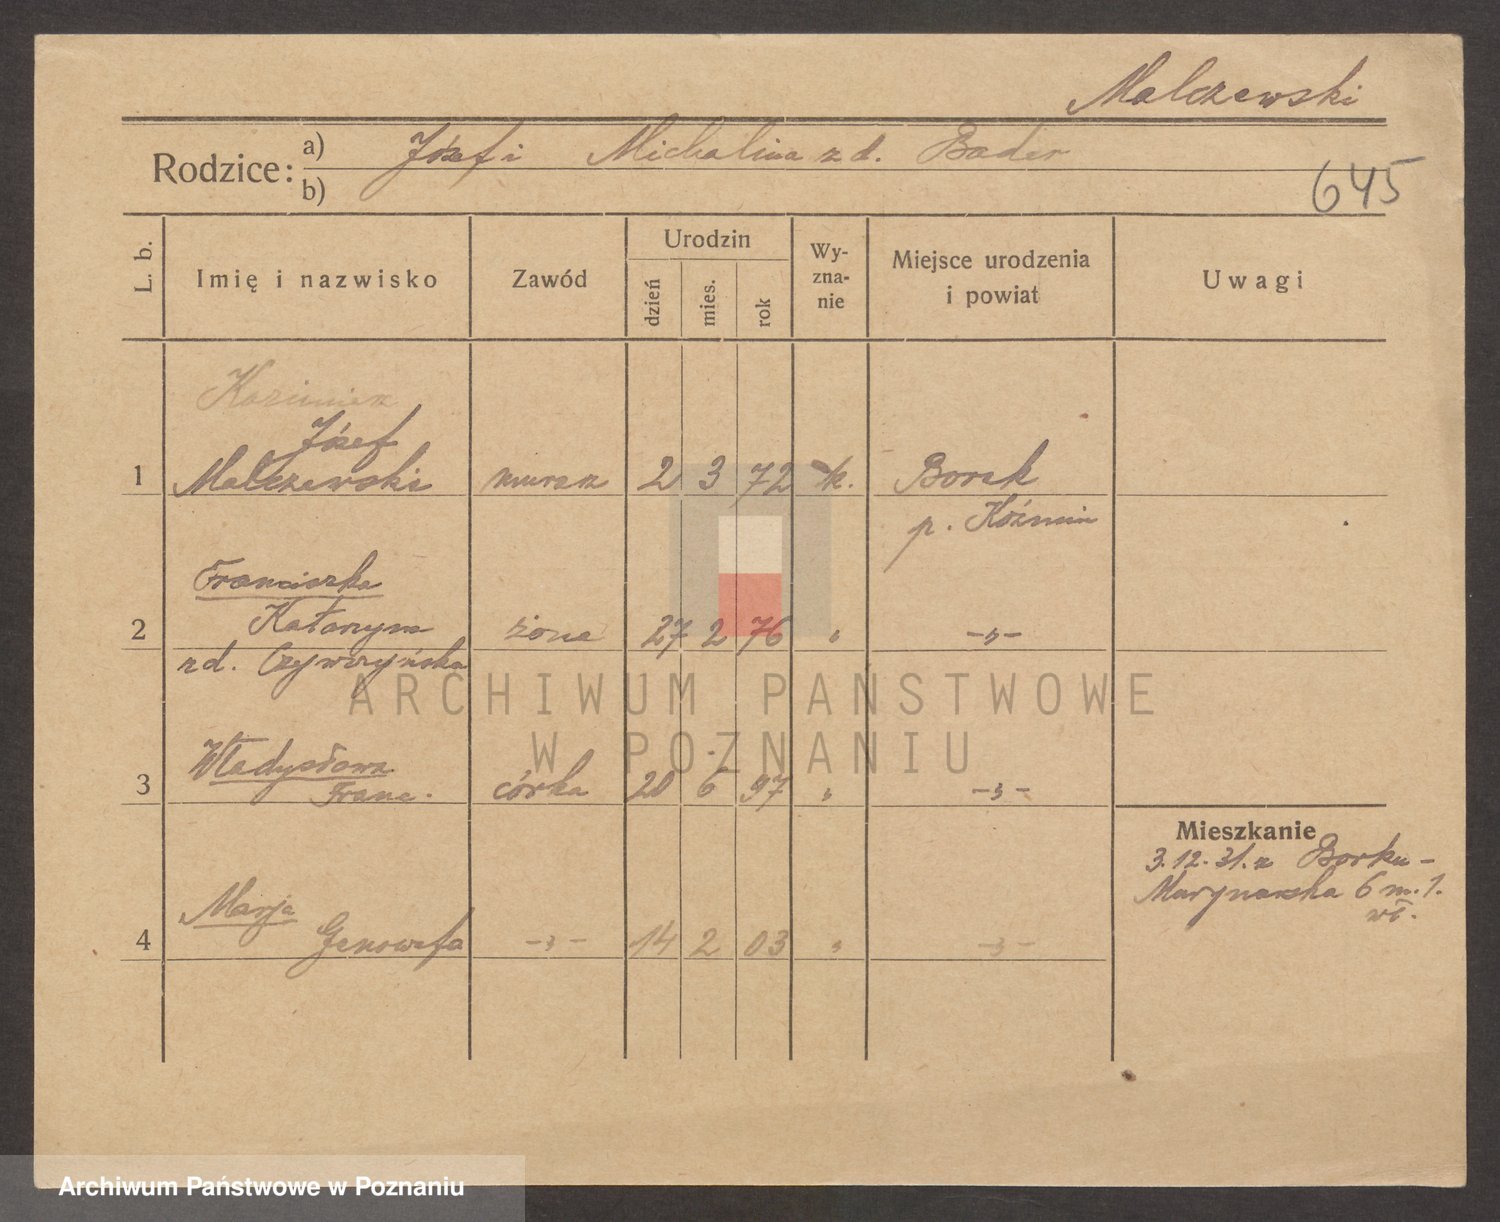 Malczewski
Rodzice: a) Józef i Michalina z d. Bader
b)
645
L. b. Imię i nazwisko Zawód Urodzin dzień mies. rok Wy-zna-nie Miejsce urodzenia i powiat Uwagi
Kazimierz
Józef
1 Malczewski murarz 2 3 72 k. Borek
p. Koźmin
Franciszka
2 Katarzyna żona 27 2 76 " -"-
z d. 
Władysława
3 Franc. córka 20 6 97 " -"-
Mieszkanie
3.12.31. z Borku-
Marynarska 6 m. 1.
wł.
Marja
4 Genowefa -"- 14 2 03 " -"-
ARCHIWUM PAŃSTWOWE
W POZNANIU
Archiwum Państwowe w Poznaniu